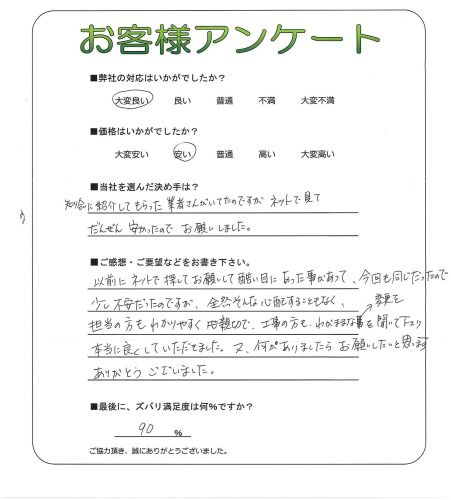 お客様アンケート
■弊社の対応はいかがでしたか？
大変良い 良い 普通 不満 大変不満
■価格はいかがでしたか？
大変安い 安い 普通 高い 大変高い
■当社を選んだ決め手は？
知合に紹介してもらった業者さんがいてたのですが ネットで見て
だんぜん 安かったので お願いしました。
■ご感想・ご要望などをお書き下さい。
以前に ネットで 探して お願いして 酷い目に あった事があって、今回も同じだったので
少し不安だったのですが、全然そんな心配することもなく、
担当の方も わかりやすく 円親切で、工事の方も わがままな事を聞いて下さり
変更と
本当に良くしていただきました。又、何かありましたら お願いしたいと思います
ありがとう ございました。
■最後に、ズバリ満足度は何％ですか？
90 ％
ご協力頂き、誠にありがとうございました。